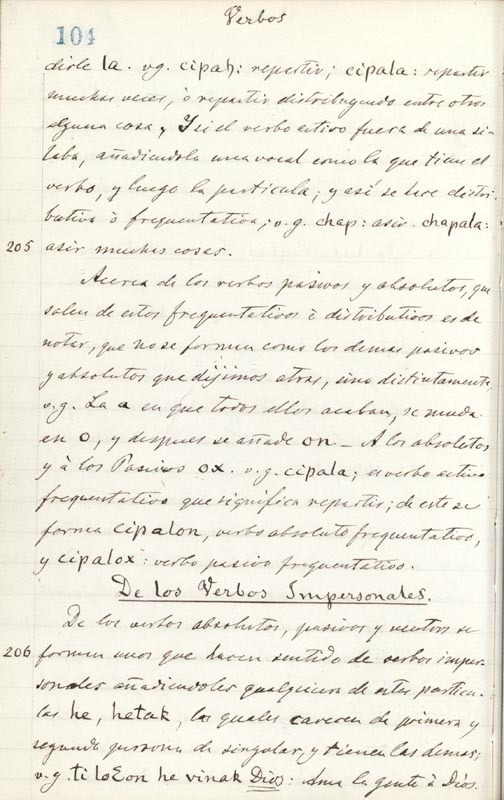 Verbos
104
dirle la. vg. cipah: repartir; cipala: repartir
muchas veces, ò repartir distribuyendo entre otros
alguna cosa, Y si el verbo activo fuera de una si-
laba, añadiendola una vocal como la que tiene el
verbo, y luego la particula; y asi se hace distri-
butiva ò frequentativa; v.g. chap: asir. chapala:
205 asir muchas cosas.
Acerca de los verbos pasivos y absolutos, que
salen de estos frequentativos è distributivos es de
notar, que no se forman como los demas pasivos
y absolutos que dijimos atras, sino distintamente,
v.g. La a en que todos ellos acaban, se muda
en o, y despues se añade on - A los absolutos
y à los Pasivos ox. v.g. cipala; el verbo activo
frequentativo que significa repartir; de este se
forma cipalon, verbo absoluto frequentativo,
y cipalox: verbo pasivo frequentativo.
De los Verbos Impersonales.
De los verbos absolutos, pasivos y neutros se
206 forman unos que hacen sentido de verbos imper-
sonales añadiendoles qualquiera de estas particu-
las he, hetak, las quales carecen de primera y
segunda persona de singular, y tienen las demas;
v.g. ti loƐon he vinak Dios: Ama la gente à Dios.